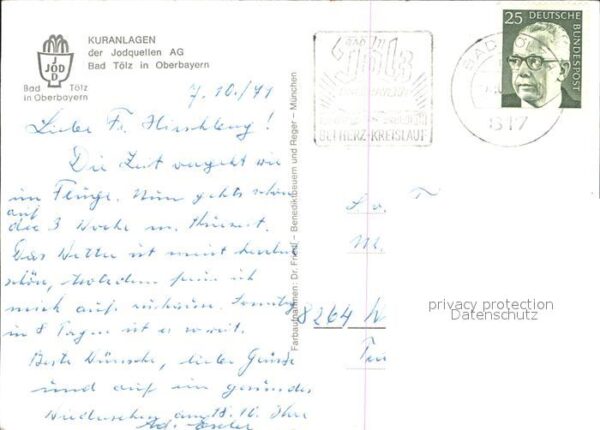 KURANLAGEN
der Jodquellen AG
Bad Tölz in Oberbayern
JOD
Bad Tölz
in Oberbayern
7.10./71
Liebe Fr. Hirschberg!
Die Zeit vergeht wie
im Fluge. Nun gehts schon
auf
die 3 Woche m. Kurzeit.
Das Wetter ist meist herrlich
schön, trotzdem freu ich
mich auf zuhause. Sonntag
in 8 Tagen ist es soweit.
Beste Wünsche, liebe Grüsse
und auf ein gesundes
Wiedersehen am 18.10. Ihre
Ad.
Farbaufnahmen: Dr. Friedl - Benediktbeuern und Reger - München
BAD TÖLZ
BEI HERZ-KREISLAUF
BAD TÖLZ
817
25 DEUTSCHE
BUNDESPOST
8264
privacy protection
Datenschutz